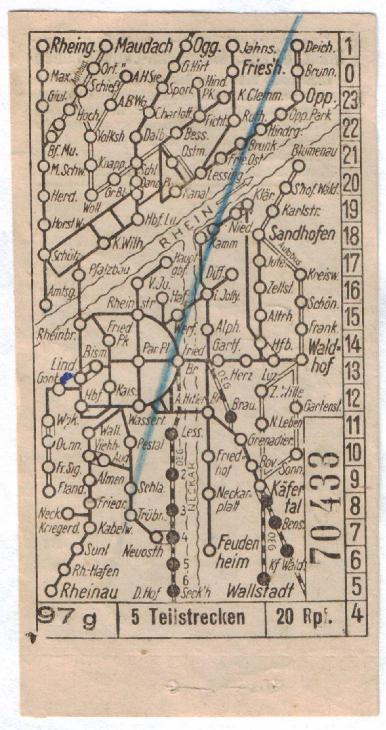 Rheing. Maudach Ogg. Jahns. Deich. 1
Max. Ort. AHSie G.Hirt Fries'h. Brunn. 0
Giul. Schief Hind Pk. K.Clemm. Opp. 23
Hoch Charlott. Ficht. Ruth. Opp.Park 22
Bf.Mu. Volksh Dalb. Bess. Hindrg.
Brunk Blumenau 21
M.Schw. Knapp. Schl Ostm. Frie.Ost
Herd. Wolf Gr.Bl. Dans Kanal Lessing 20
Klär. S'hof.Wald.
Horst W. Hbf.Lu. Karlstr. 19
RHEIN Nied. Sandhofen 18
Schütz K.Wilh. Kamm
Pfalzbau Haupt Diff. Jute Autobus Kreisw. 17
Amtsg. V.Ju. Haf. Jolly. Zellst. Schön. 16
Rhein str. Altrh Frank. 15
Rheinbr. Fried Pk Werf. Alph. Wald-
hof 14
Lind. Bism Par.Pl. Fried Br. Gartf. Hfb.
Gont. Herz Luz. 13
Hbf. Kais. OEG Z.Wille 12
Wasser. A.Hitler Br. Brau. Gartenst.
Wall. N.Leben 11
Viehh. Pestal Less. Grenadier
Dann. Aug. OEG Fried
hof Bov. Sonn. 10
Fr.Sig. Almen NECKAR Käfer
tal 9
Fland. Schla. Neckar
platt
Neck. Friedr. 3 Bens. 8
Kriegerd. Kabelw. Trübn. 4 OEG 7
Sunl Neuosth Feuden
heim Kf Wald.
Rh-Hafen 5 6
Rheinau D.Hof 6 Seck'h Wallstadt 5
70433
97 g 5 Teilstrecken 20 Rpf. 4